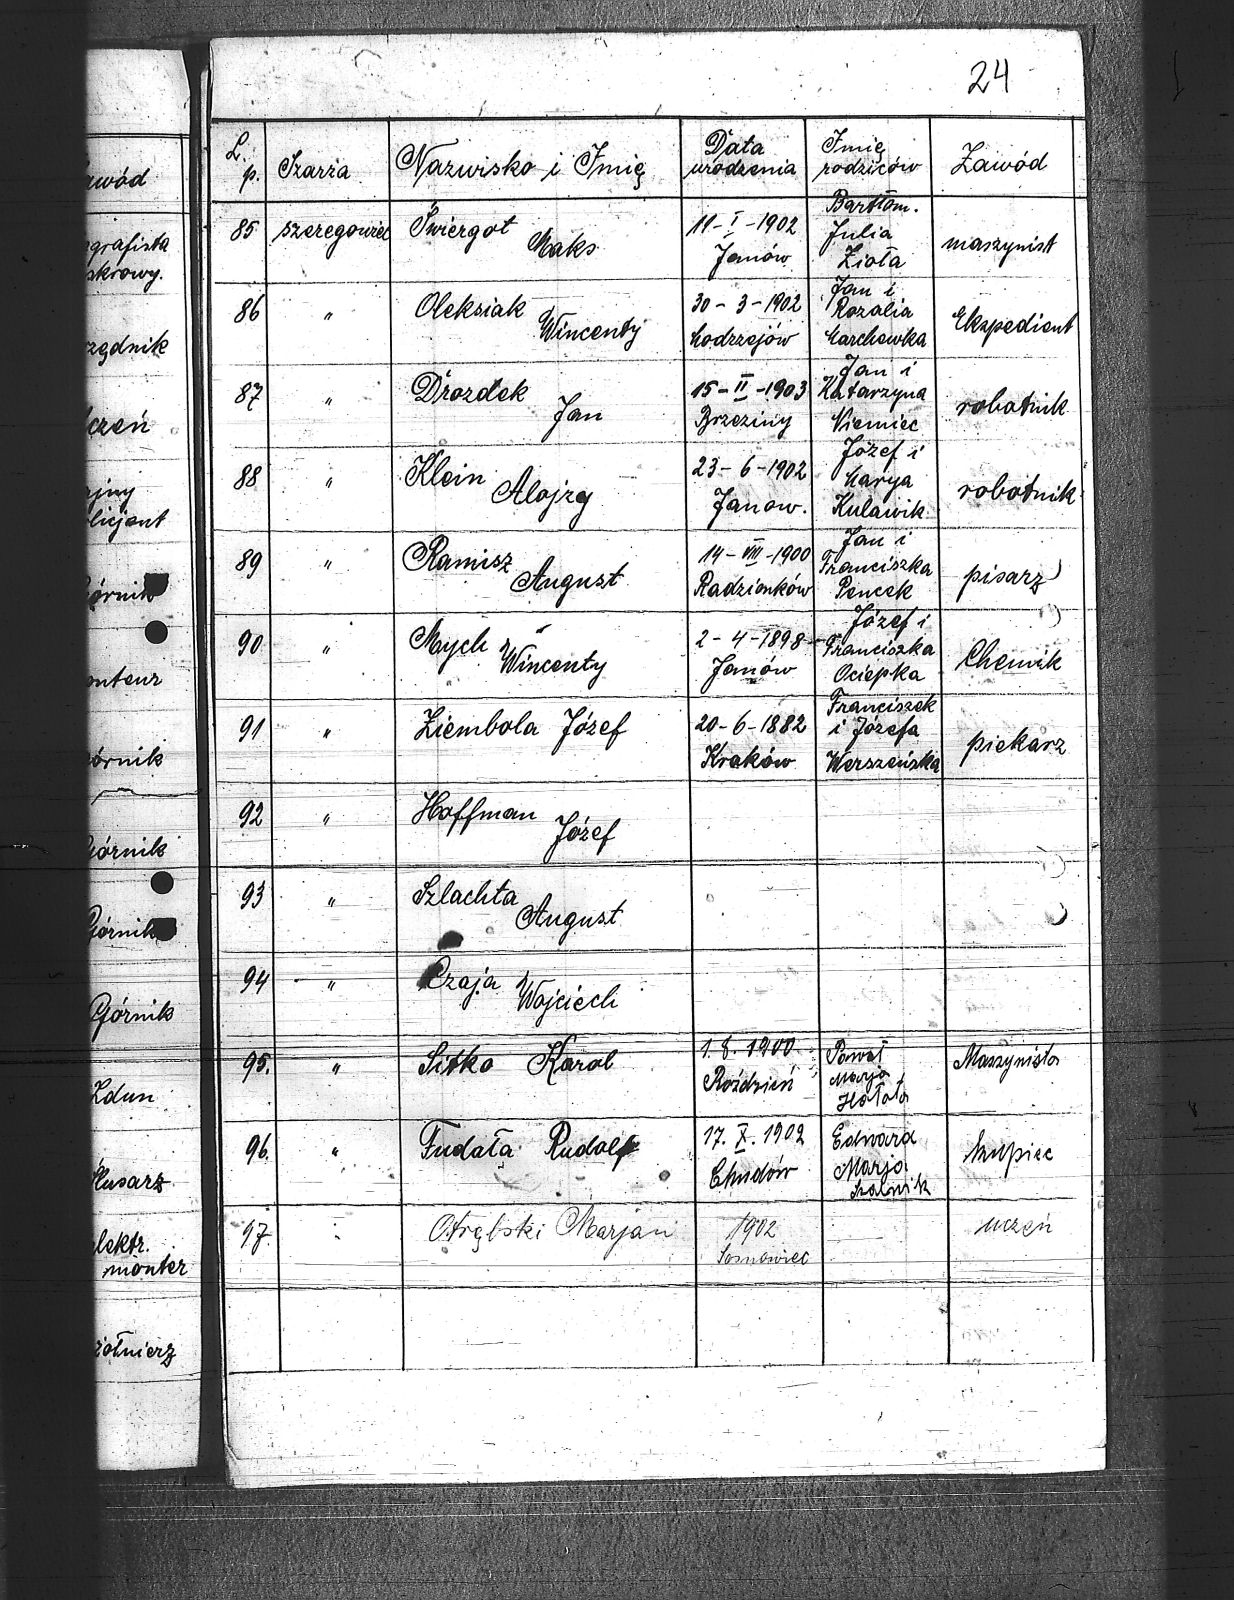 24
L. p. Szarża Nazwisko i Imię Data urodzenia Imię rodziców Zawód
85 szeregowiec Świergot Maks 11-I-1902 Janów Bartłom. Julia Zioła maszynist
86 " Oleksiak Wincenty 30-3-1902 Modrzejów Jan i Rozalia Marchewka Ekspedient
87 " Drozdek Jan 15-II-1903 Brzeziny Jan i Katarzyna Niemiec robotnik
88 " Klein Alojzy 23-6-1902 Janow. Józef i Marya Kulawik robotnik
89 " Ramisz August 14-VIII-1900 Radzionków Jan i Franciszka Pencek pisarz
90 " Mych Wincenty 2-4-1898 Janów Józef i Franciszka Ociepka Chemik
91 " Ziembola Józef 20-6-1882 Kraków Franciszek i Józefa Werszeńska piekarz
92 " Hoffman Józef
93 " Szlachta August
94 " Czaja Wojciech
95. " Sitko Karol 1.8.1900 Roździeń Paweł Marja Hałota Maszynista
96. " Fudała Rudolf 17.X.1902 Chudów Edward Marja kupiec
97. " Otrębski Marjan 1902 Sosnowiec uczeń
górnik
Górnik
Górnik
Górnik
Zdun
elektr.
monter
żołnierz